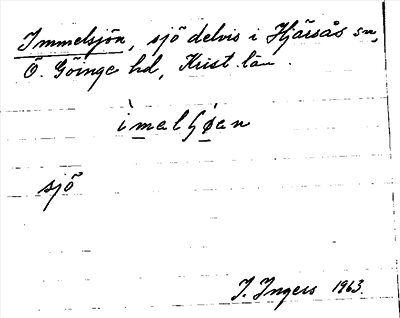 Immelsjön, sjö delvis i Hjärsås sn,
Ö. Göinge hd, Krist. län.
sjö
I. Ingers 1963.